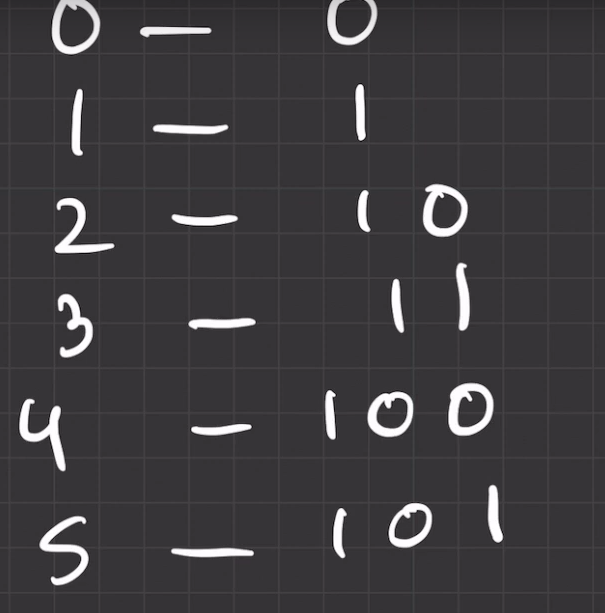 0 — 0
1 — 1
2 — 10
3 — 11
4 — 100
5 — 101